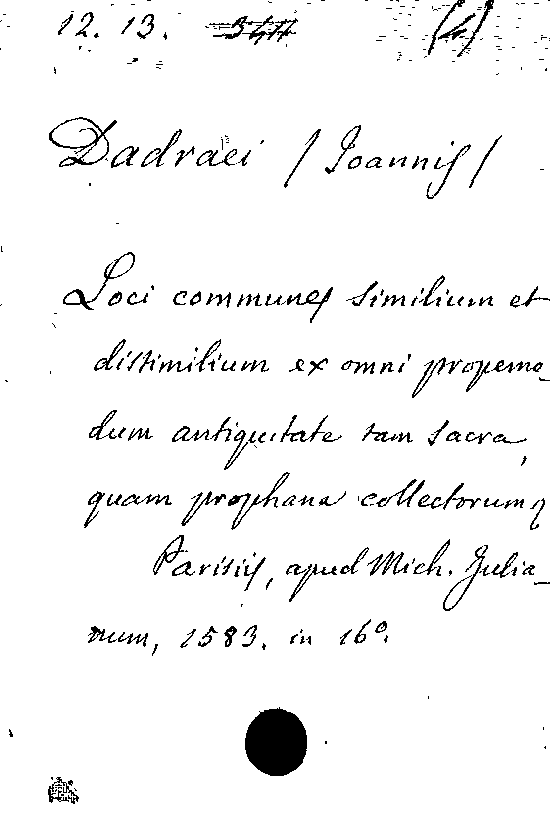 12. 13. (4)
Dadraei / Joannis /
Loci communes similium et
dissimilium ex omni propemo-
dum antiquitate tam sacra,
quam prophana collectorum
Parisiis, apud Mich. Julia-
num, 1583. in 16º.